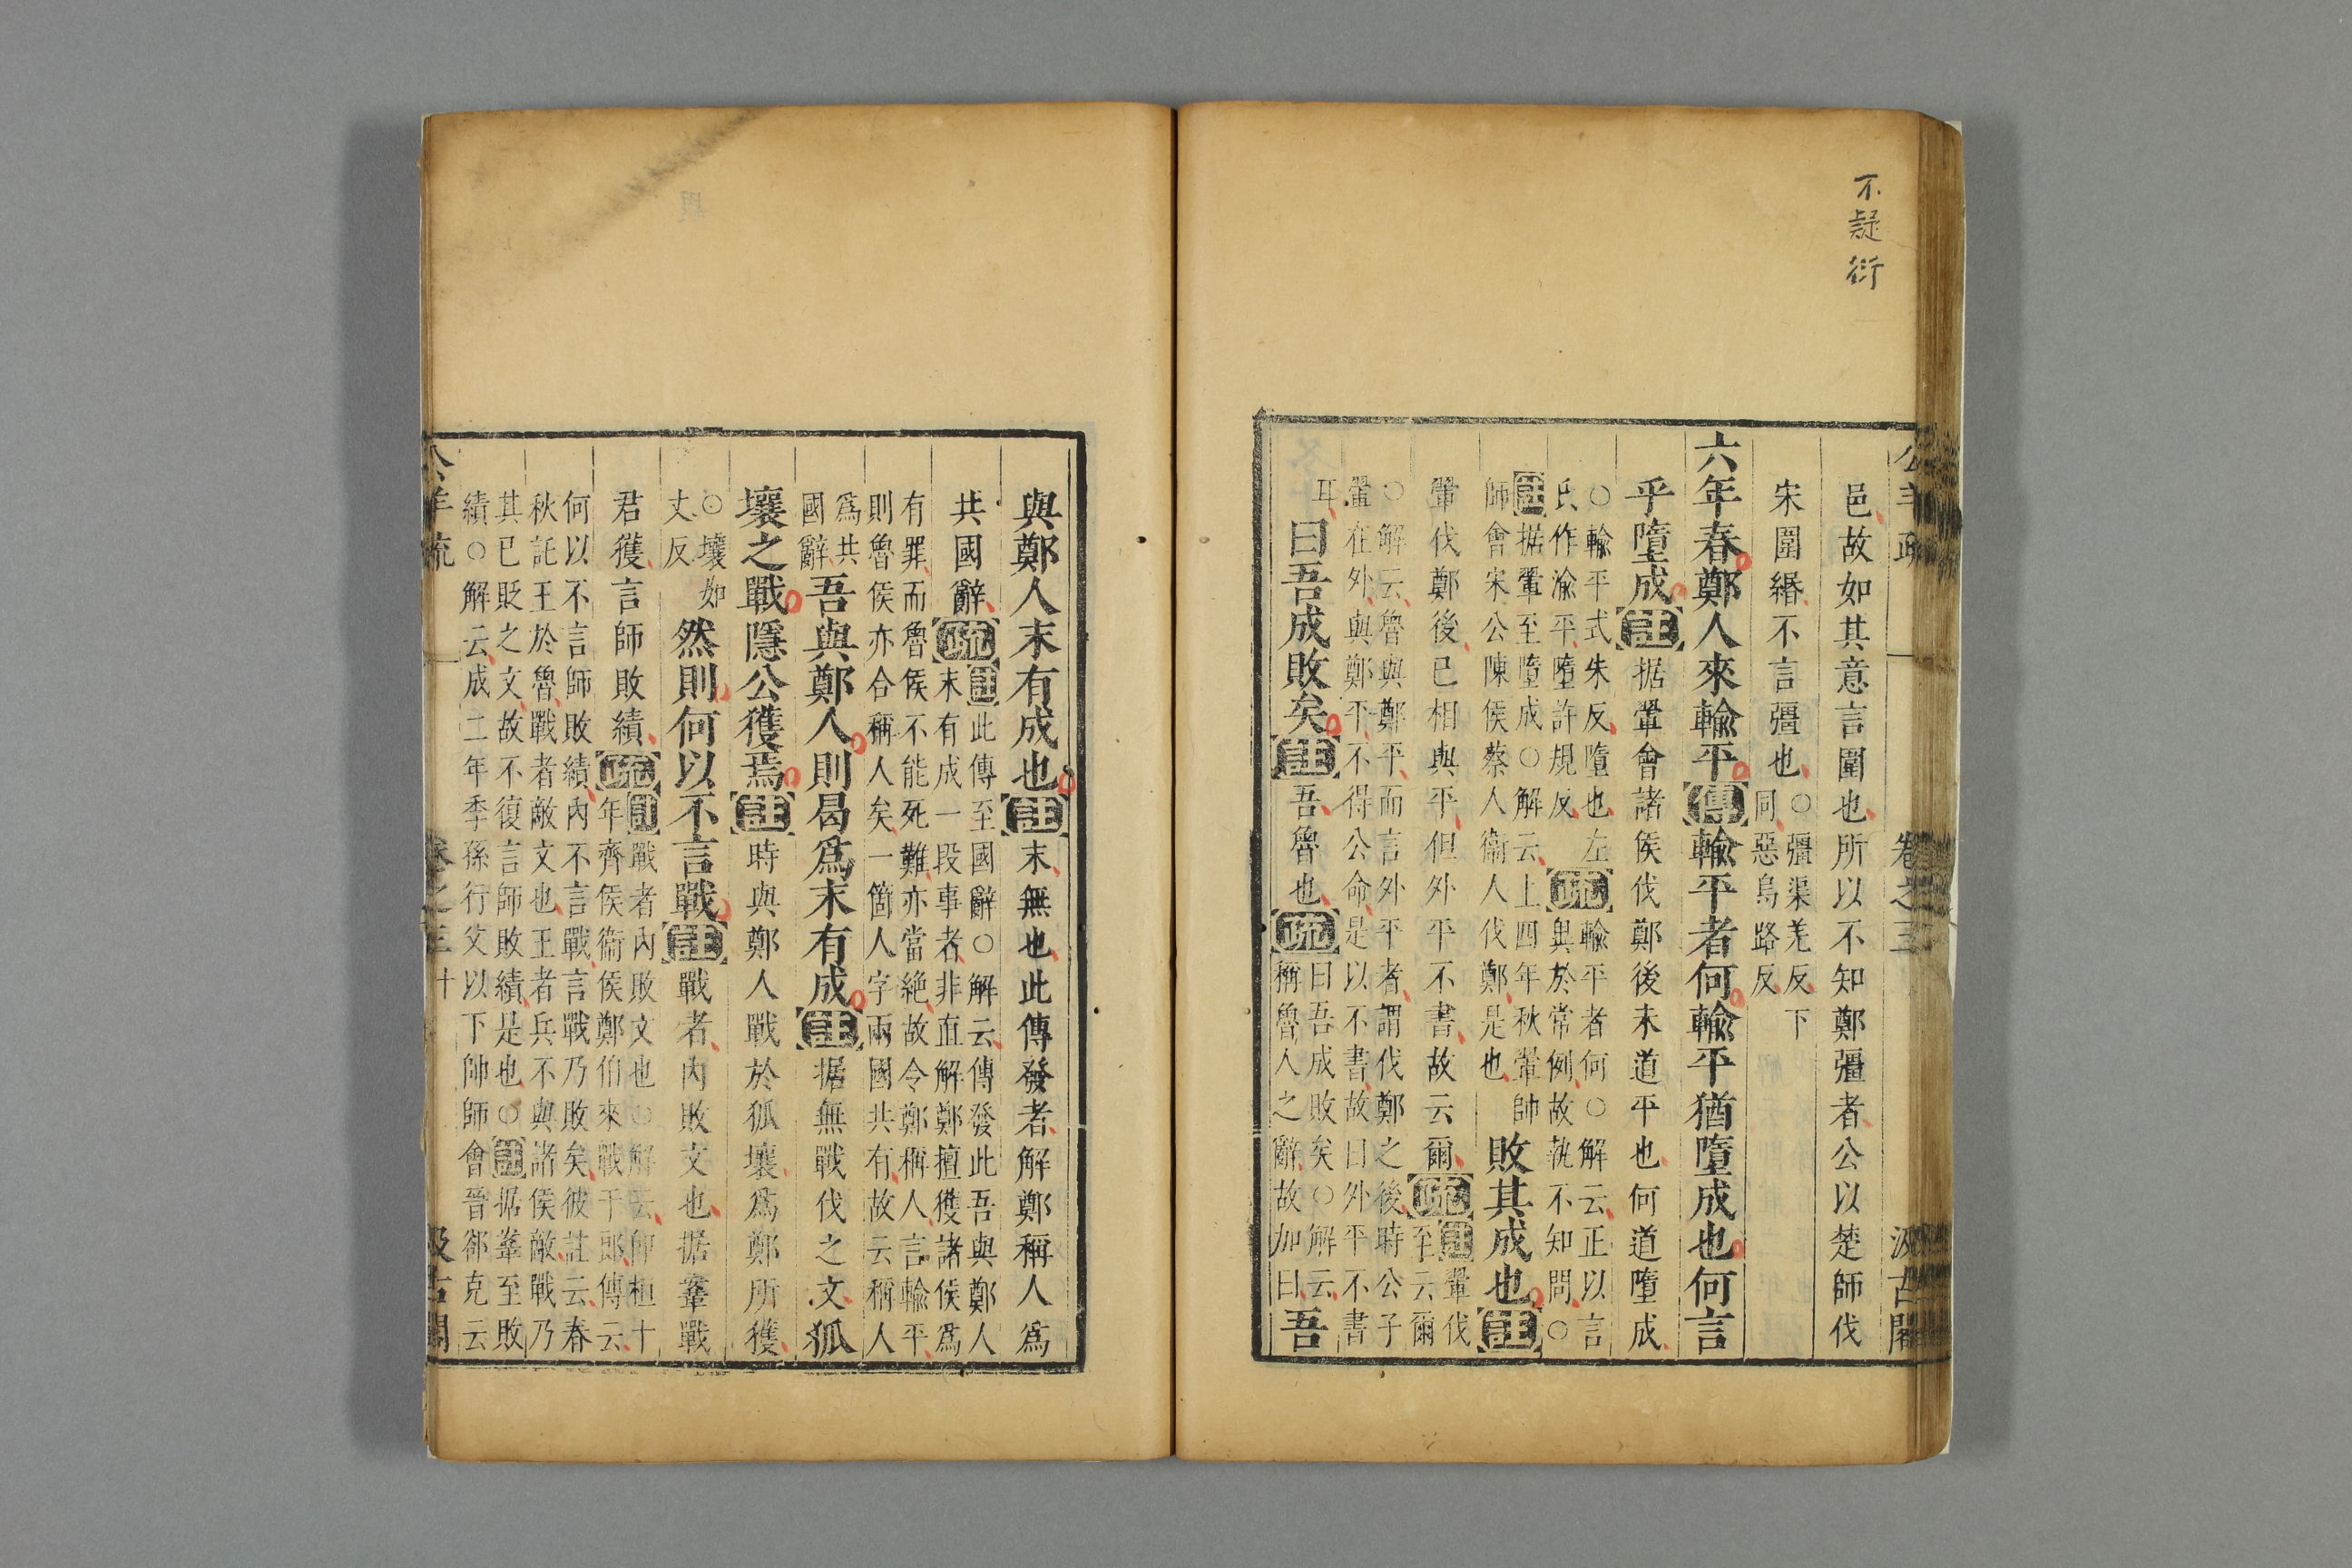 不疑衍
公羊疏 卷之三 汲古閣
邑故如其意言圍也所以不知鄭彊者公以楚師伐
宋圍緡不言彊也○彊渠羌反下同惡烏路反
六年春鄭人來輸平傳輸平者何輸平猶墮成也何言
乎墮成註据翬會諸侯伐鄭後未道平也何道墮成
○輸平式朱反墮也左氏作渝平墮許規反疏輸平者何○解云正以言與於常例故執不知問○
註据翬至墮成○解云上四年秋翬帥師會宋公陳侯蔡人衞人伐鄭是也敗其成也註
翬伐鄭後已相與平但外平不書故云爾疏註翬伐至云爾
○解云魯與鄭平而言外平者謂伐鄭之後時公子翬在外與鄭平不得公命是以不書故曰外平不書
耳曰吾成敗矣註吾魯也疏曰吾成敗矣○解云稱魯人之辭故加曰吾
與鄭人末有成也註末無也此傳發者解鄭稱人爲
共國辭疏註此傳至國辭○解云傳發此吾與鄭人末有成一段事者非直解鄭擅獲諸侯爲
有罪而魯侯不能死難亦當絶故令鄭稱人言輸平則魯侯亦合稱人矣一箇人字兩國共有故云稱人
爲共國辭吾與鄭人則曷爲末有成註据無戰伐之文狐
壤之戰隱公獲焉註時與鄭人戰於狐壤爲鄭所獲
○壤如丈反然則何以不言戰註戰者內敗文也据鞌戰
君獲言師敗績疏註戰者內敗文也○解云卽桓十年齊侯衞侯鄭伯來戰于郎傳云
何以不言師敗績內不言戰言戰乃敗矣彼註云春秋託王於魯戰者敵文也王者兵不與諸侯敵戰乃
其已貶之文故不復言師敗績是也○註据鞌至敗績○解云成二年季孫行父以下帥師會晉郤克云
公羊疏 卷之三 十 汲古閣